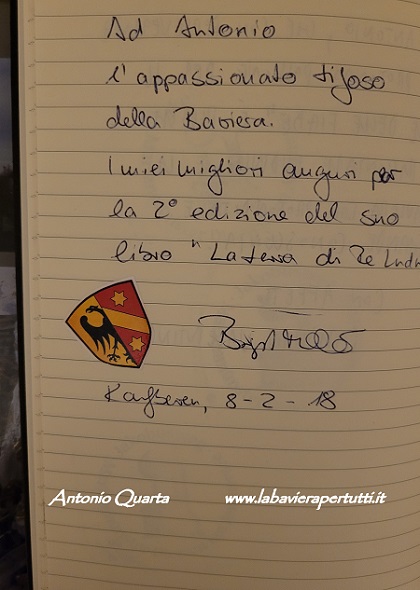 Ad Antonio
l'appassionato tifoso
della Baviera.
I miei migliori auguri per
la 2° edizione del suo
libro "La terra di Re Ludw
Kaufbeuren, 8-2-18
Antonio Quarta www.labavierapertutti.it